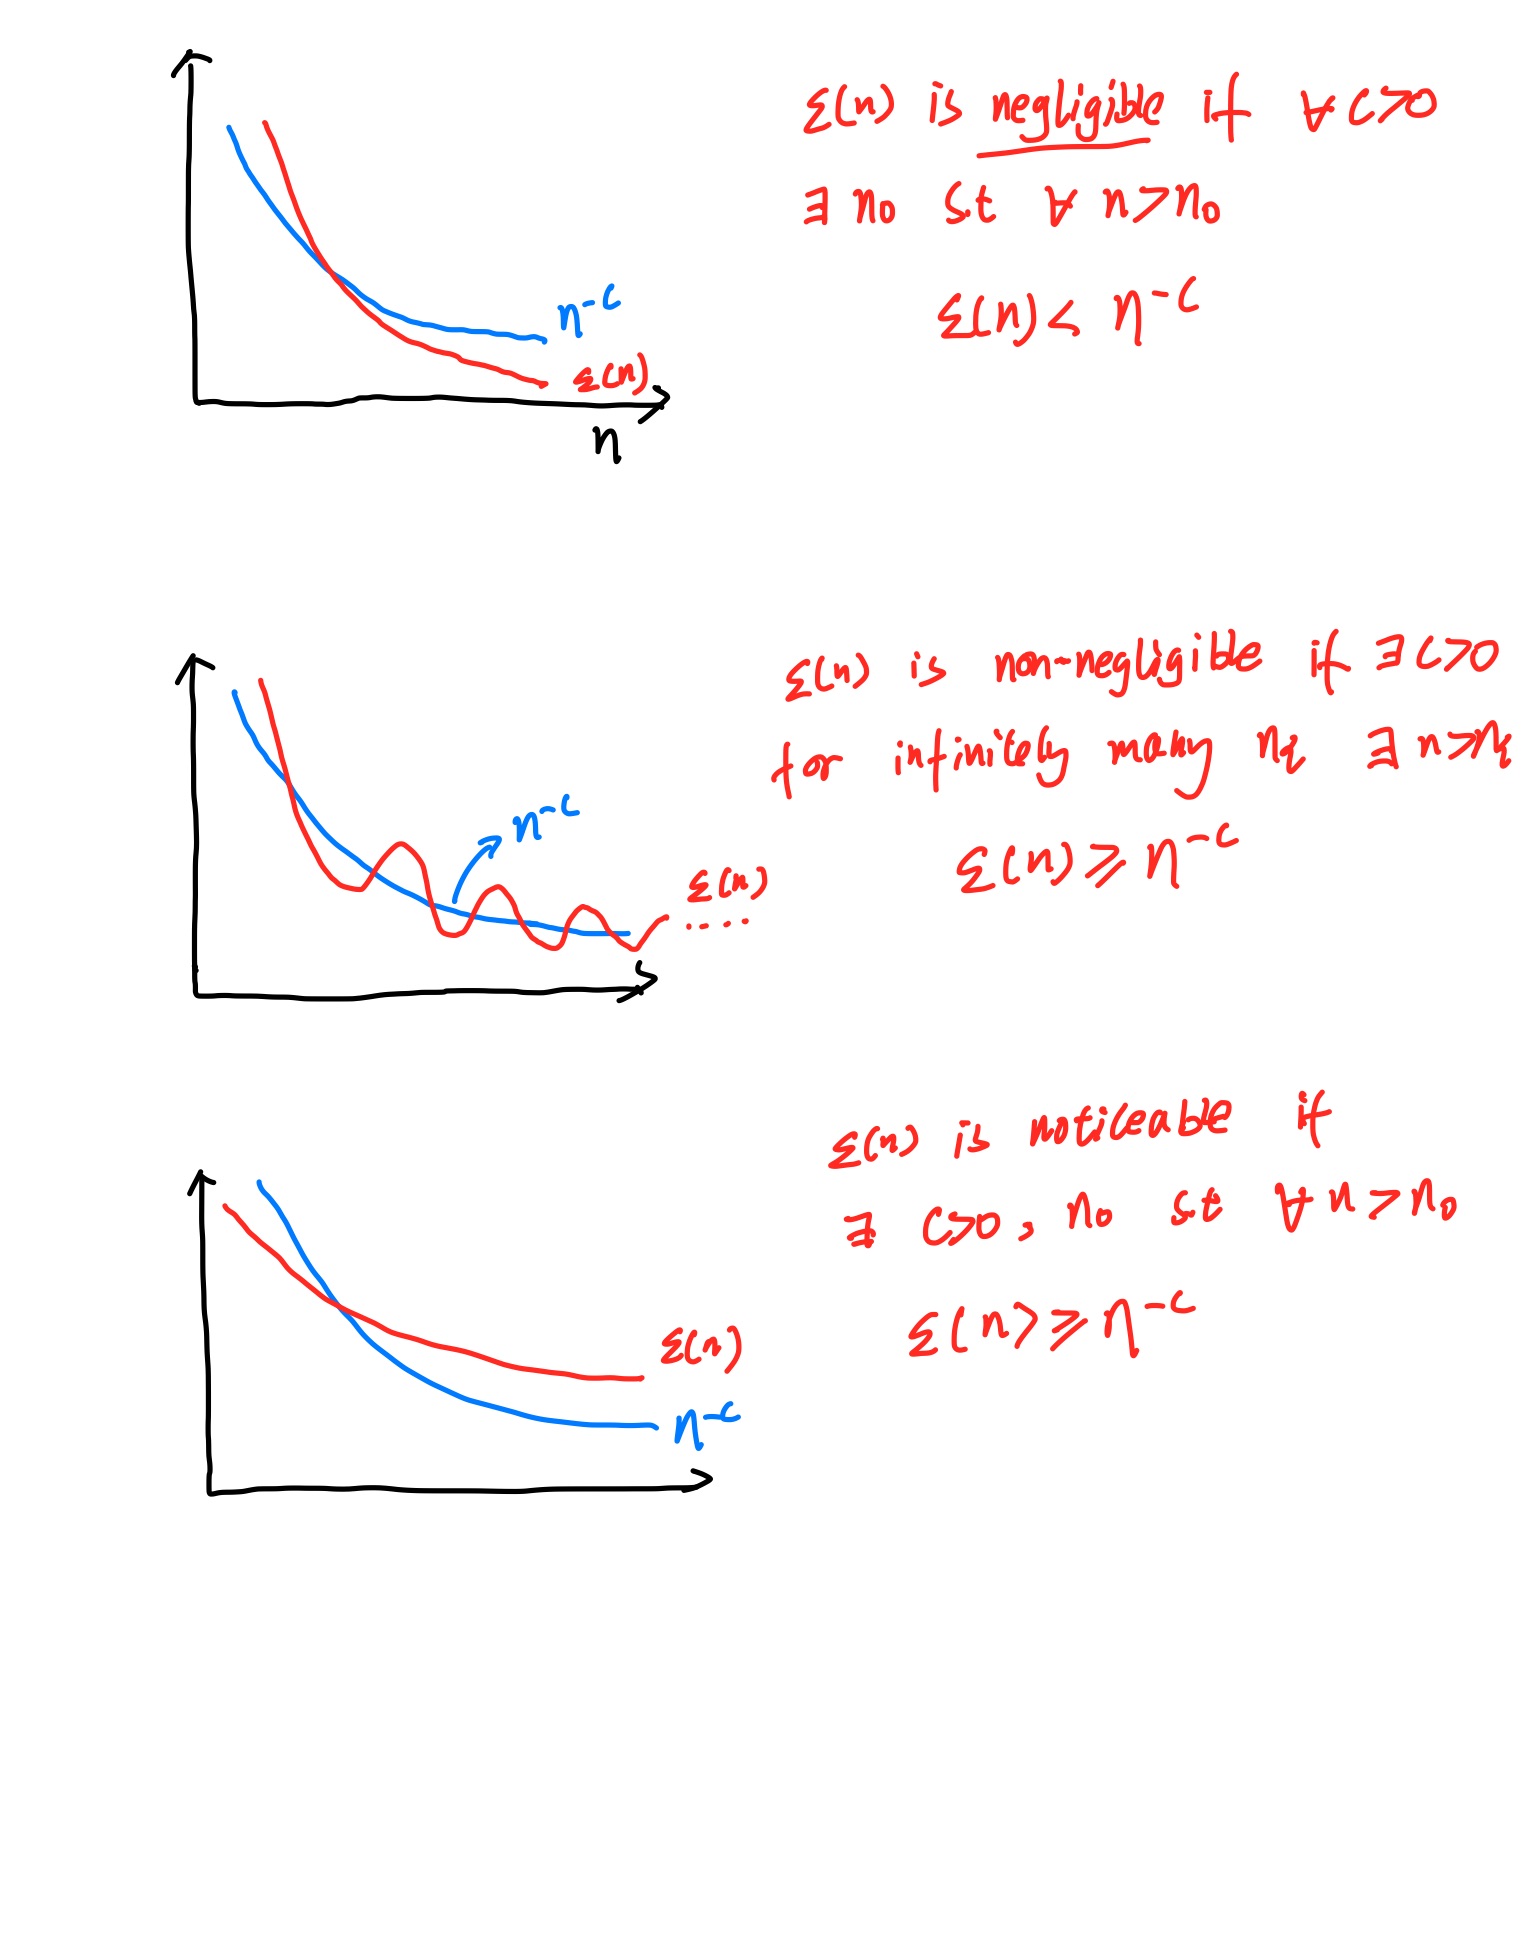 ε(n) is negligible if ∀ c>0
∃ n₀ st ∀ n>n₀
ε(n) < n⁻ᶜ
n⁻ᶜ
ε(n)
n
ε(n) is non-negligible if ∃ c>0
for infinitely many
∃ n>
ε(n) ⩾ n⁻ᶜ
n⁻ᶜ
ε(n)
.....
ε(n) is noticeable if
∃ c>0, n₀ st ∀ n>n₀
ε(n) ⩾ n⁻ᶜ
ε(n)
n⁻ᶜ